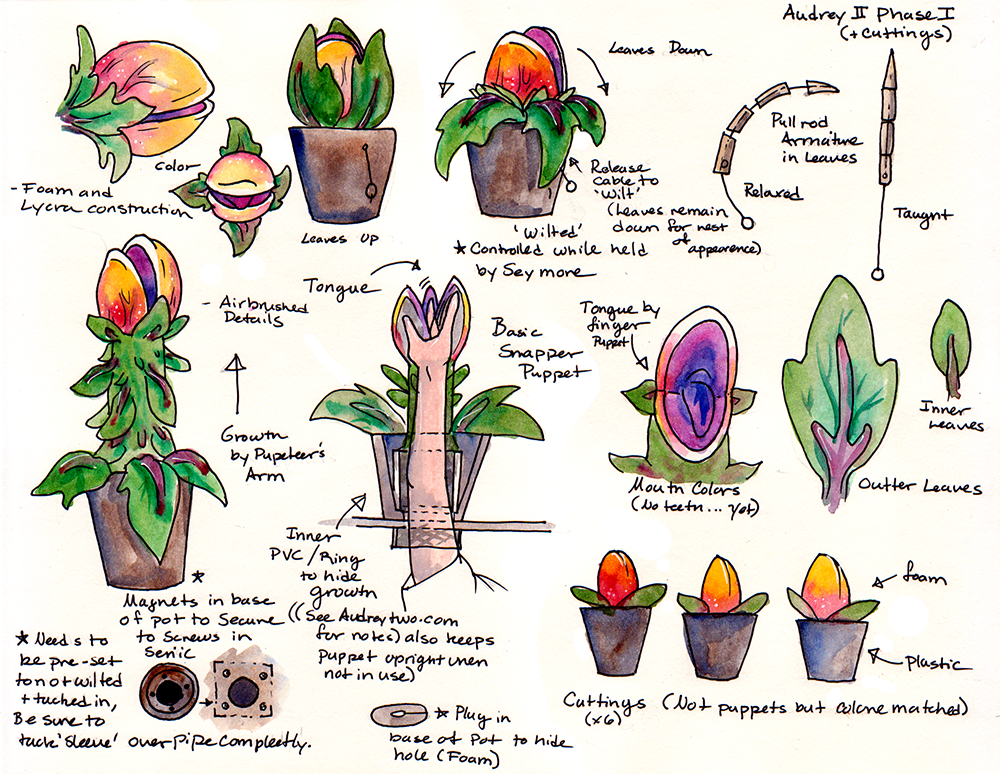 Audrey II Phase I
(+ Cuttings)
Leaves Down
color
- Foam and
Lycra construction
Leaves Up
Release
cable to
'Wilt'
(Leaves remain
down for rest
of
appearence)
'Wilted'
* Controlled while held
by Seymore
Pull rod
Armature
in Leaves
Relaxed
Taught
Tongue
- Airbrushed
Details
Growth
by Pupeteer's
Arm
Basic
Snapper
Puppet
Tongue by
finger
Puppet
Mouth Colors
(No teeth ... yet)
Inner
Leaves
Outter Leaves
*
Magnets in base
of pot to Secure
to Screws in
Senic
* Needs to
be pre-set
to not wilted
+ tucked in,
Be sure to
tuck 'Sleeve' over pipe compleetly.
Inner
PVC / Ring
to hide
growth
((See Audreytwo.com
for notes) also keeps
puppet upright when
not in use)
* Plug in
base of Pot to hide
hole (Foam)
foam
Plastic
Cuttings (Not puppets but colore matched)
(x6)